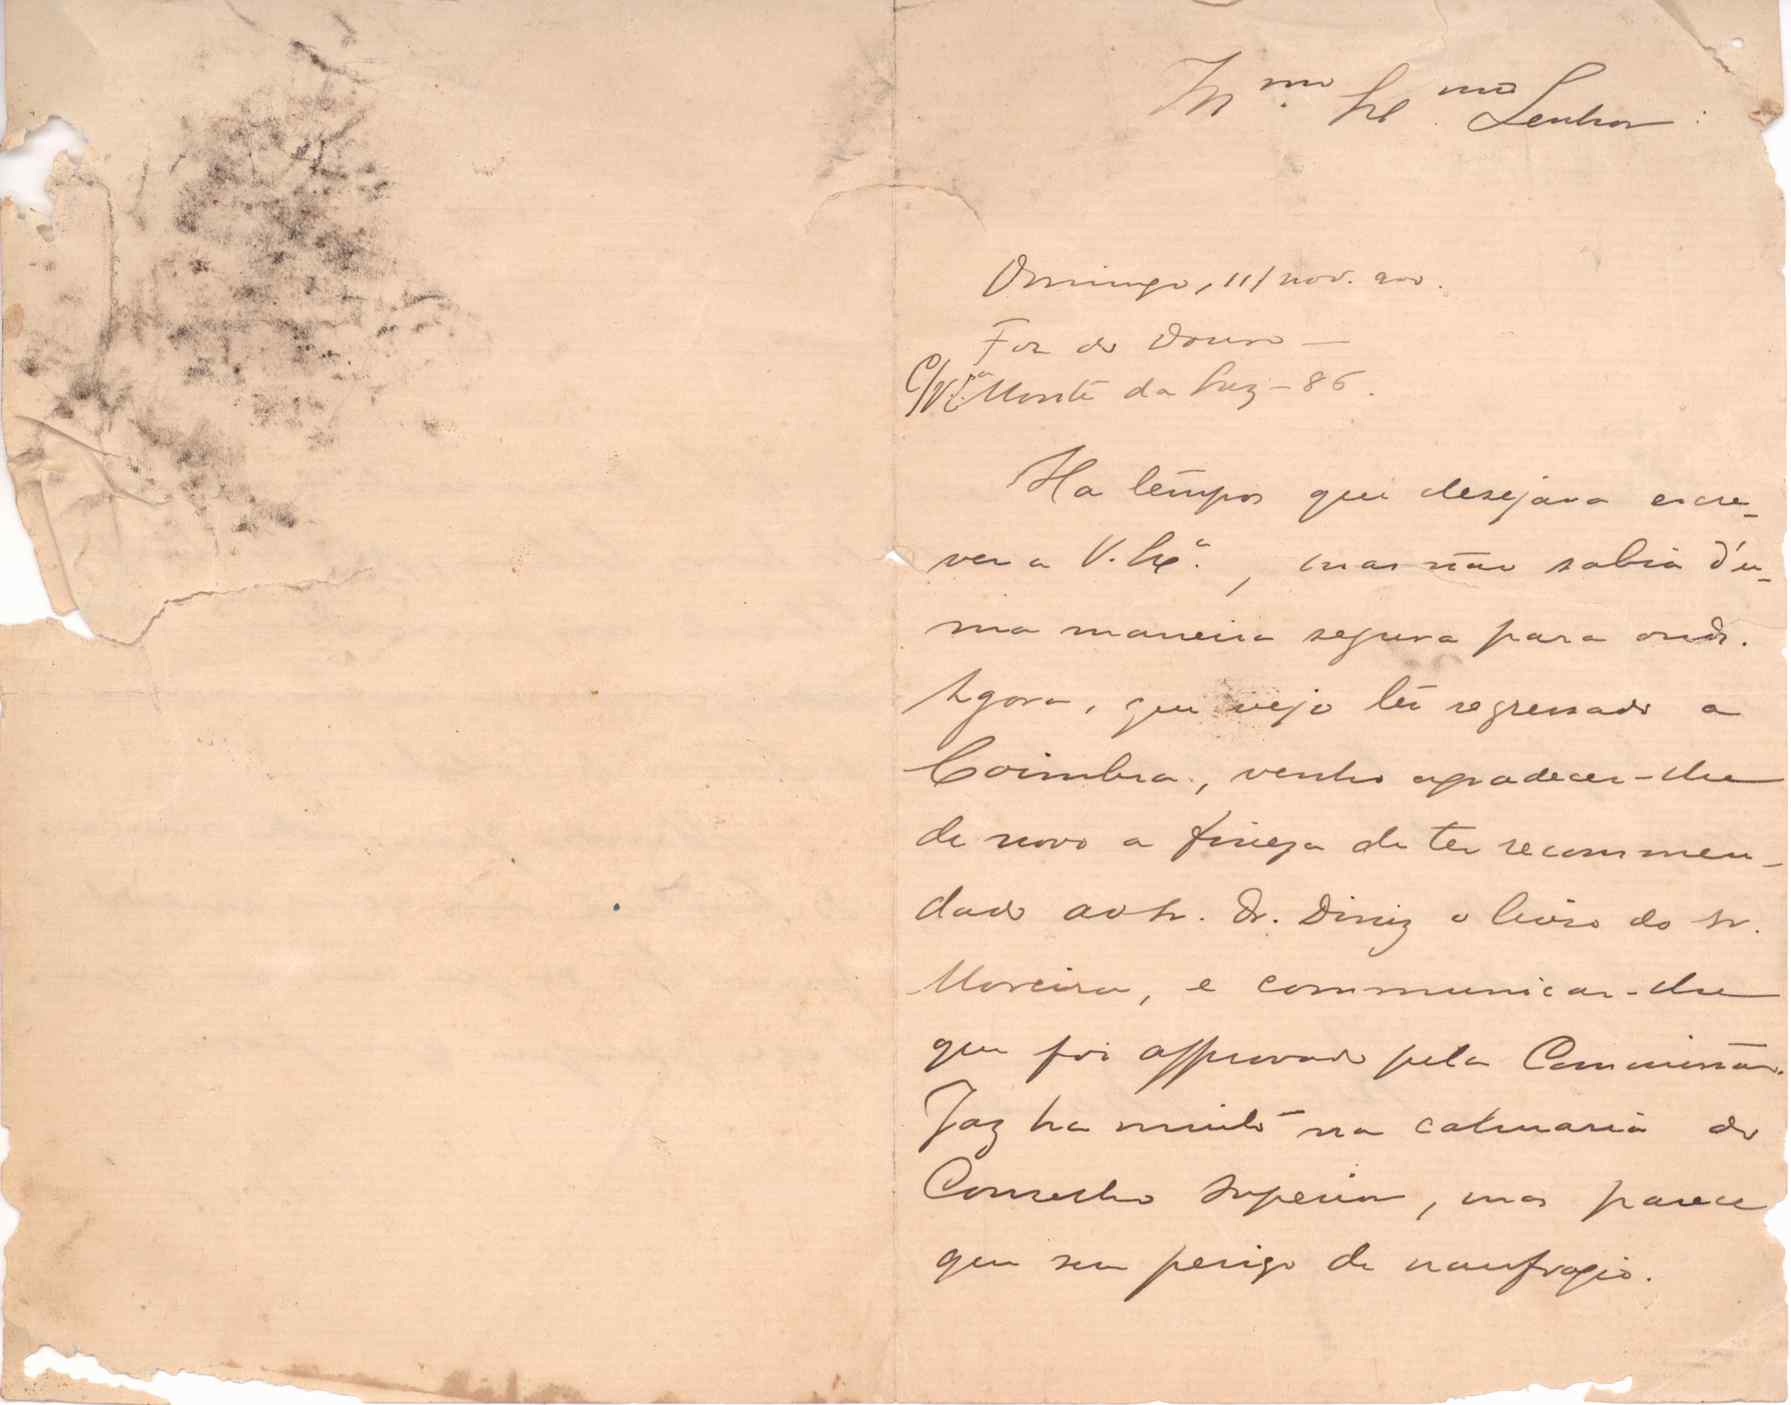 Ill.mo Ex.mo Senhor:
Domingo, 11/nov. 900.
Foz do Douro —
Monte da Luz – 86.
Ha tempos que desejava escre-
ver a V. Ex.ª, mas não sabia d'u-
ma maneira segura para onde.
Agora, que vejo ter regressado a
Coimbra, venho agradecer-lhe
de novo a fineza de ter recommen-
dado ao Sr. Dr. Diniz o livro do Sr.
Moreira, e communicar-lhe
que foi approvado pela Commissão.
Jaz ha muito na do
Conselho Superior, mas parece
que sem perigo de naufragio.